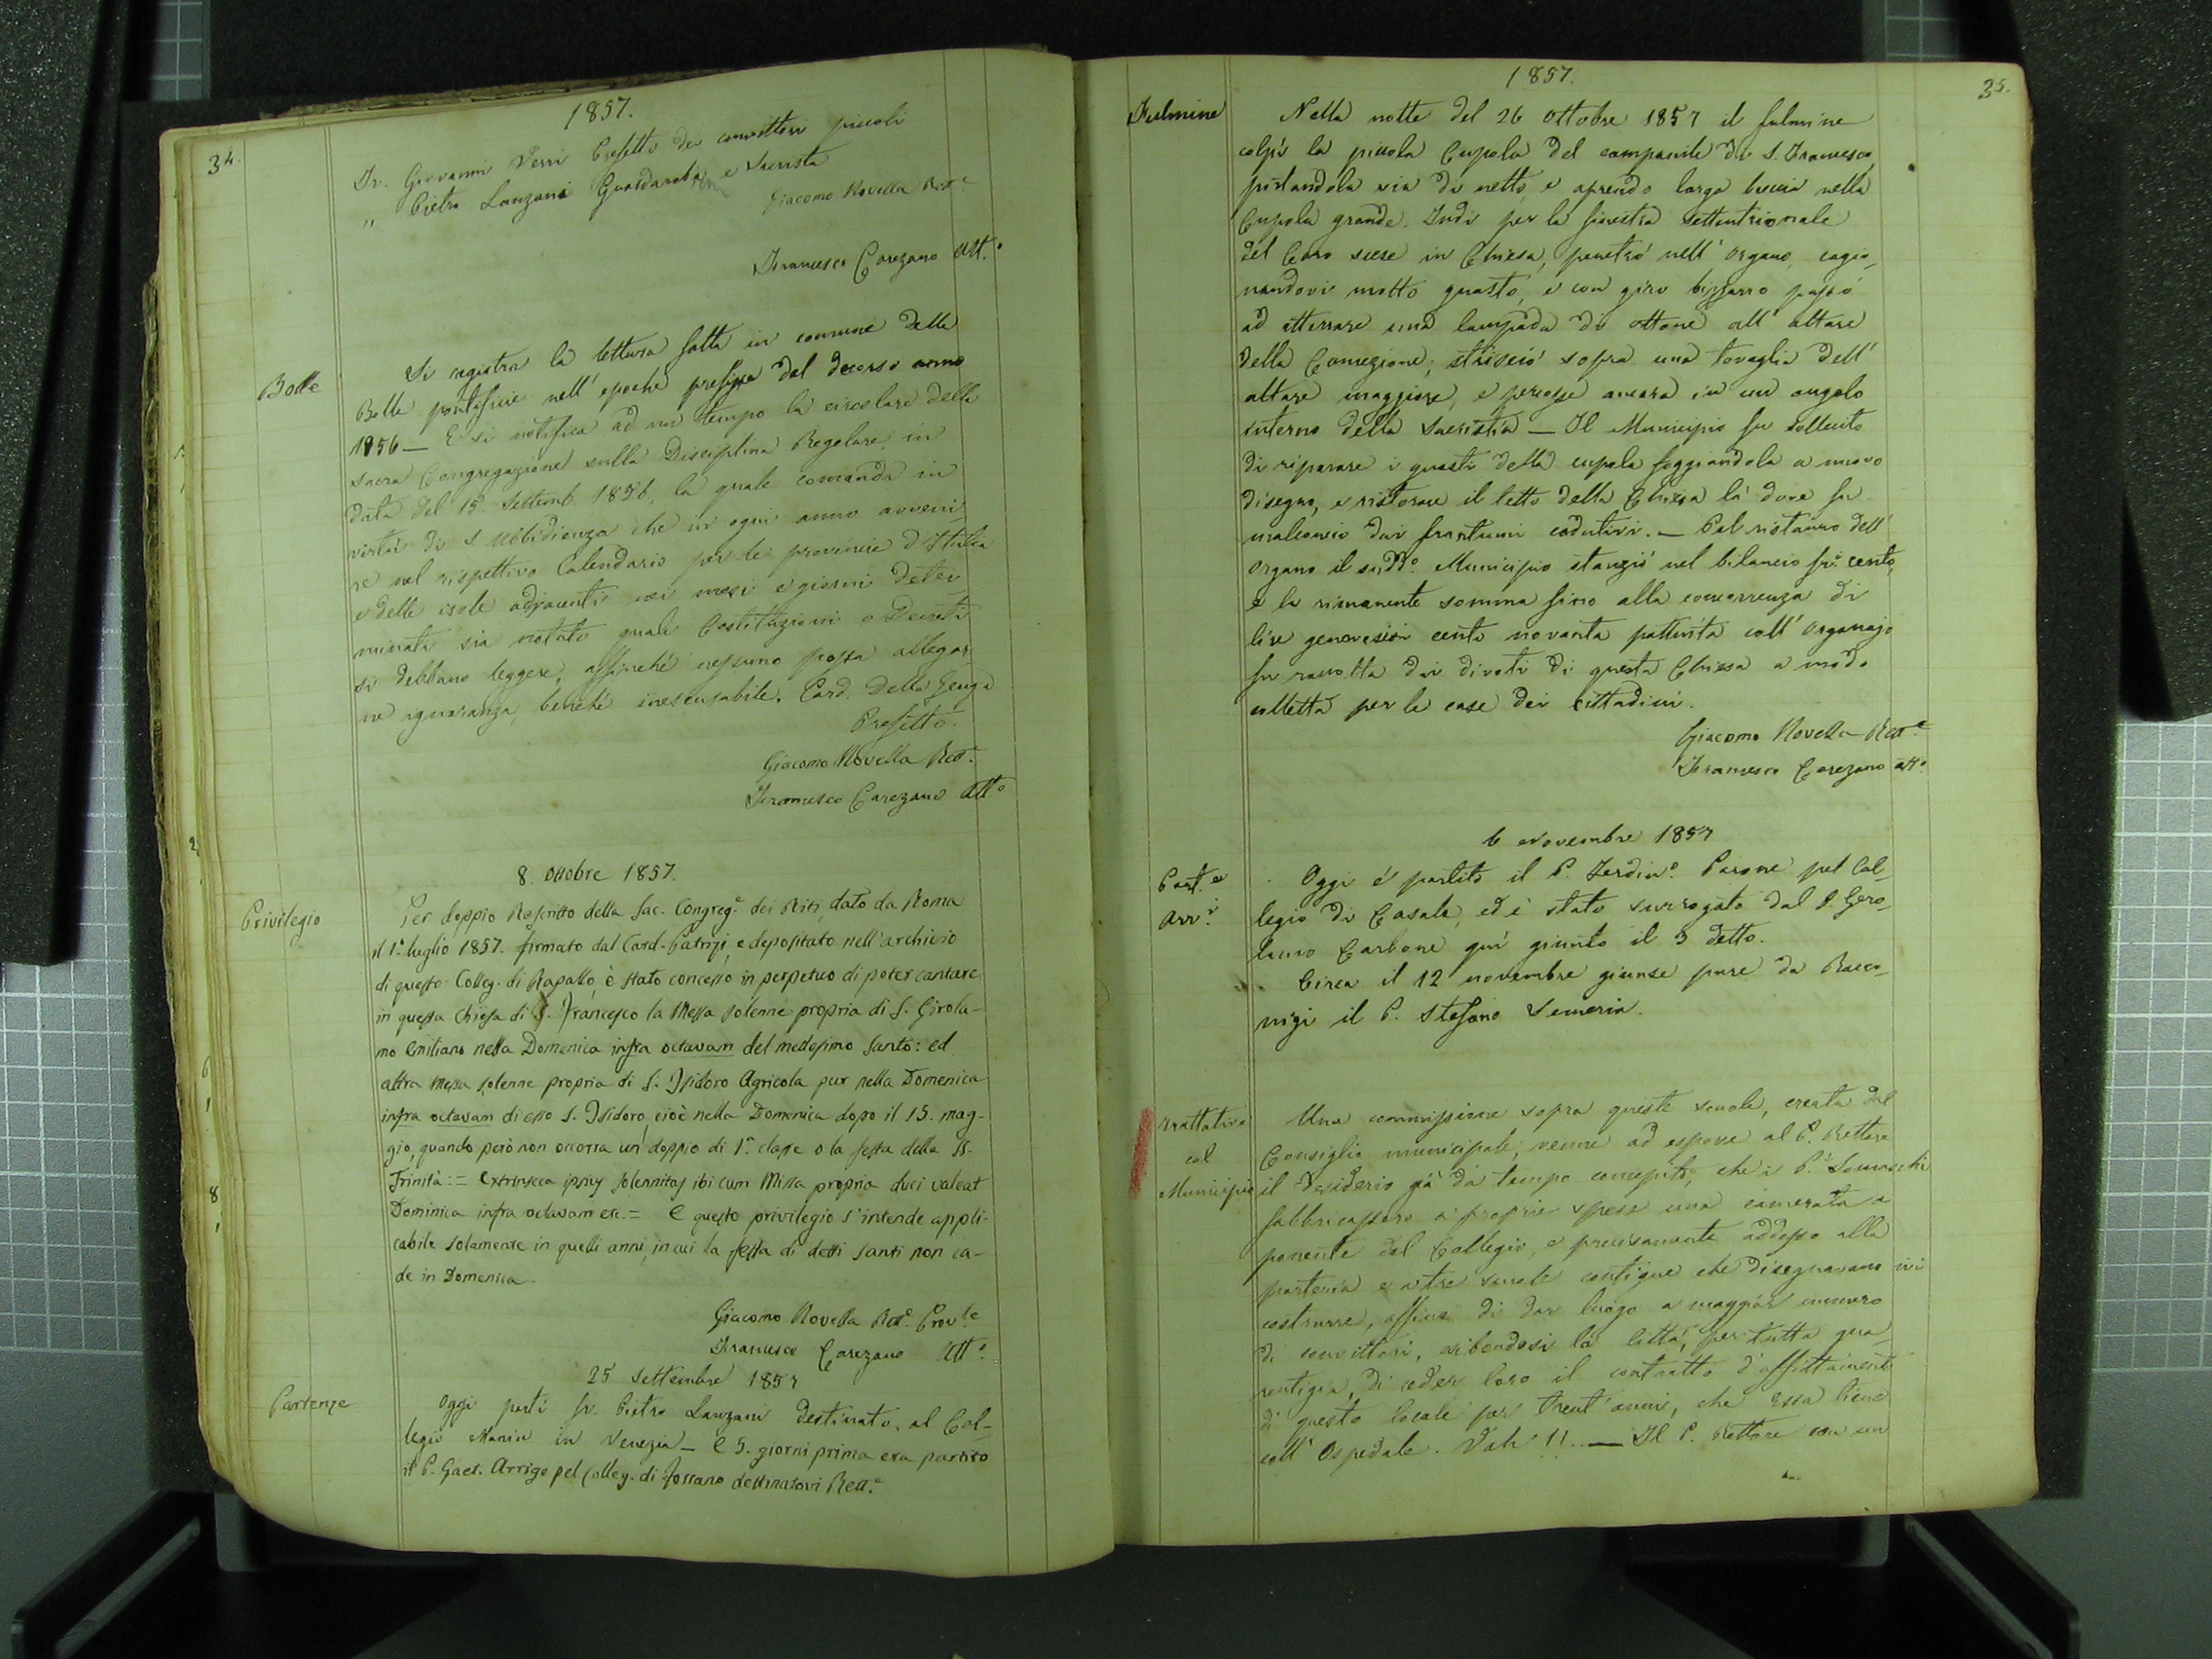 34.
1857.
Fr. Giovanni Verri Prefetto dei convittori piccoli
" Pietro Lanzani Guardaroba e Sacrista
Giacomo Novella Rett.e
Francesco Carezano Att.o
Bolle
Si registra la lettura fatta in comune delle
Bolle pontificie nell' epoche prefisse del decorso anno
1856 — E si notifica ad un tempo la circolare della
sacra Congregazione sulla Disciplina Regolare in
data del 15. Settemb. 1856, la quale comanda in
virtù di S. Ubbidienza che in ogni anno avveni-
re nel rispettivo Calendario per le provincie d'Italia
e delle isole adjacenti nei mesi e giorni deter-
minati sia notato quali Costituzioni o Decreti
si debbano leggere, affinchè nessuno possa allegar-
ne ignoranza, benchè inescusabile. Card. Della Genga
Prefetto.
Giacomo Novella Rett.e
Francesco Carezano Att.o
8. Ottobre 1857.
Privilegio
Per doppio Rescritto della Sac. Congreg.e dei Riti, dato da Roma
il 1.o luglio 1857. firmato dal Card. Patrizi, e depositato nell'archivio
di questo Colleg. di Rapallo, è stato concesso in perpetuo di poter cantare
in questa Chiesa di S. Francesco la Messa solenne propria di S. Girola-
mo Emiliano nella Domenica infra octavam del medesimo Santo: ed
altra Messa solenne propria di S. Isidoro Agricola pur nella Domenica
infra octavam di esso S. Isidoro, cioè nella Domenica dopo il 15. mag-
gio, quando però non occorra un doppio di 1.a classe o la festa della SS.
Trinità: = Extrinseca ipsius solemnitas ibi cum Missa propria duci valeat
Dominica infra octavam etc. = E questo privilegio s'intende appli-
cabile solamente in quelli anni, in cui la festa di detti Santi non ca-
de in Domenica.
Giacomo Novella Rett.e Prov.le
Francesco Carezano Att.o
25 Settembre 1857
Partenze
Oggi partì fr. Pietro Lanzani destinato al Col-
legio Manin in Venezia — E 5. giorni prima era partito
il P. Gaet. Arrigo pel Colleg. di Fossano destinatovi Rett.e
1857.
35.
Fulmine
Nella notte del 26 Ottobre 1857 il fulmine
colpì la piccola Cupola del campanile di S. Francesco,
portandola via di netto, e aprendo larga breccia nella
Cupola grande. Indi per la finestra settentrionale
del Coro scese in Chiesa, penetrò nell' organo, cagio-
nandovi molto guasto, e con giro bizzarro passò
ad atterrare una lampada di ottone all' altare
della Concezione; strisciò sopra una tovaglia dell'
altare maggiore, e percosse ancora in un angolo
interno della Sacristia — Il Municipio fu sollecito
di riparare i guasti della cupola foggiandola a nuovo
disegno, e ristorare il tetto della Chiesa là dove fu
malconcio dai frantumi cadutivi. — Pel ristauro dell'
organo il sudd.o Municipio stanziò nel bilancio fr.i cento,
e la rimanente somma fino alla concorrenza di
lire genovesi cento novanta pattuita coll' organajo
fu raccolta dai divoti di questa Chiesa a modo
colletta per le case dei Cittadini.
Giacomo Novella Rett.e
Francesco Carezano Att.o
6 Novembre 1857
Part.e
Arr.i
Oggi è partito il P. Ferdin.o Pavone pel Col-
legio di Casale, ed è stato surrogato dal P. Gero-
lamo Carbone quì giunto il 3 detto.
Circa il 12 novembre giunse pure da Racco-
nigi il P. Stefano Semeria.
Trattative
col
Municipio
Una commissione sopra queste scuole, creata dal
Consiglio municipale, venne ad esporre al P. Rettore
il desiderio già da tempo concepito, che i P. Somaschi
fabbricassero a proprie spese una camerata a
ponente del Collegio, e precisamente addosso alla
porteria e altre scuole contigue che disegnavano ivi
costrurre, affine di dar luogo a maggior numero
di convittori, esibendosi la Città, per tutta gua-
rentigia, di ceder loro il contratto d'affittamento
di questo locale per trent' anni, che essa tiene
coll' Ospedale. Vah!! — Il P. Rettore con un